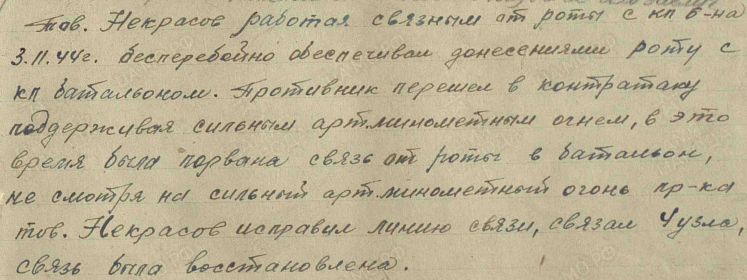 тов. Некрасов работая связным от роты с кп б-на
3.11.44г. бесперебойно обеспечивал донесениями роту с
кп батальоном. Противник перешел в контратаку
поддерживая сильным арт.минометным огнем, в это
время была порвана связь от роты в батальон,
не смотря на сильный арт.минометный огонь пр-ка
тов. Некрасов исправил линию связи, связал 4 узла,
связь была восстановлена.